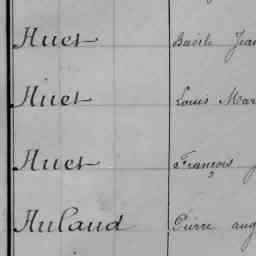 Huet Basile Jean
Huet Louis Mar
Huet François
Hulaud Pierre aug